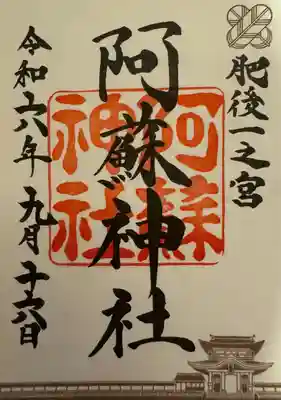 肥後一之宮
阿蘇神社
阿蘇神社
令和六年 九月十六日